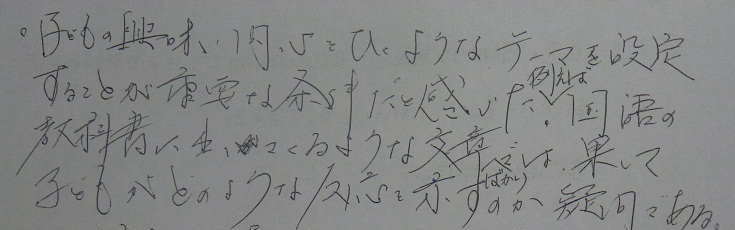 。子どもの興味・関心をひくようなテーマを設定
することが重要な条件だと感じた。例えば国語の
教科書に出てくるような文章ばかりでは、果して
子どもがどのような反応を示すのか疑問である。